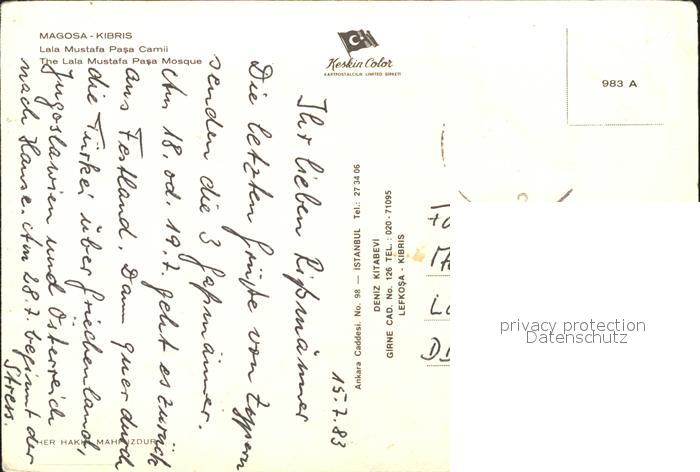 MAGOSA - KIBRIS
Lala Mustafa Paşa Camii
The Lala Mustafa Paşa Mosque
Keskin Color
KARTPOSTALCILIK LIMITED ŞIRKETI
983 A
15.7.83
Ihr lieben Rißmänner
Die letzten Grüße von Zypern
senden die 3 Gaßmänner.
Am 18. od. 19.7. geht es zurück
ans Festland. Dann quer durch
die Türkei über Griechenland,
Jugoslawien und Österreich
nach Hause. Am 28.7. beginnt der
Stress.
Ankara Caddesi. No. 98 — ISTANBUL Tel.: 27 34 06
DENİZ KITABEVİ
GİRNE CAD. No. 126 TEL.: 020-71095
LEFKOŞA - KIBRIS
HER HAKKI MAHFUZDUR
privacy protection
Datenschutz